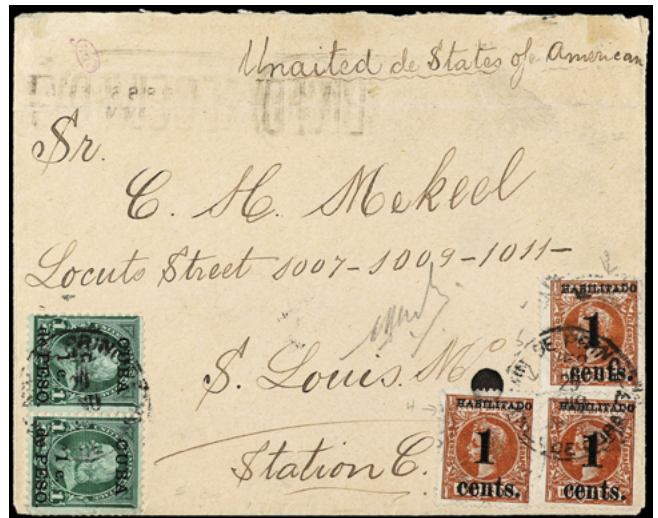 Unaited de States of American
Sr.
C. H. Mekeel
Locuts Street 1007-1009-1011-
S. Louis. Mo
Station C.
CUBA
1 c.
de PESO
CUBA
1 c.
de PESO
HABILITADO
1
cents.
HABILITADO
1
cents.
HABILITADO
1
cents.